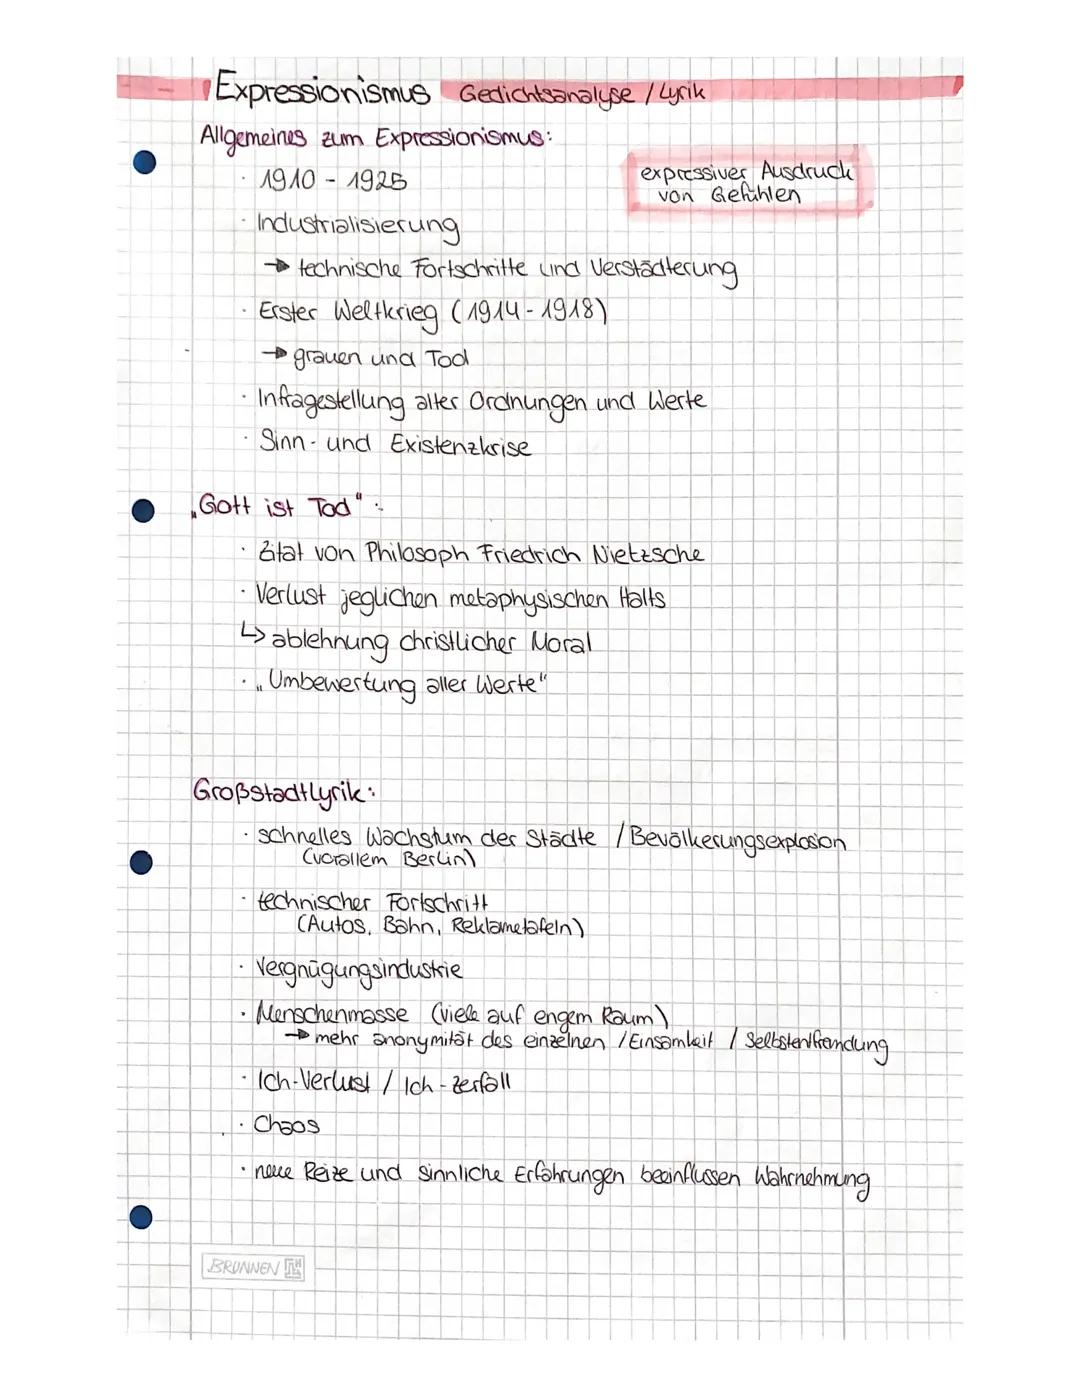 Expressionismus Gedichtsanalyse / Lyrik
Allgemeines zum Expressionismus:
expressiver Ausdruck
von Gefühlen
· 1910 - 1925
· Industrialisierung
→ technische Fortschritte und Verstädterung
· Erster Weltkrieg (1914 - 1918)
→ grauen und Tod
· Infragestellung alter Ordnungen und Werte
· Sinn- und Existenzkrise
„Gott ist Tod":
· Zitat von Philosoph Friedrich Nietzsche
· Verlust jeglichen metaphysischen Halts
↳ ablehnung christlicher Moral
· „Umbewertung aller Werte"
Großstadtlyrik:
· schnelles Wachstum der Städte / Bevölkerungsexplosion
(vorallem Berlin)
· technischer Fortschritt
(Autos, Bahn, Reklametafeln)
· Vergnügungsindustrie
· Menschenmasse (viele auf engem Raum)
→ mehr anonymität des einzelnen / Einsamkeit / Selbstentfremdung
· Ich-Verlust / Ich-zerfall
· Chaos
· neue Reize und sinnliche Erfahrungen beeinflussen Wahrnehmung
BRUNNEN